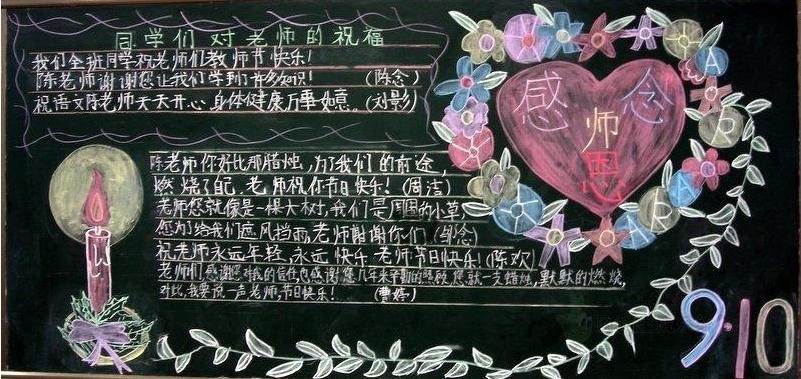 同学们对老师的祝福
我们全班同学祝老师们教师节快乐!
陈老师谢谢您让我们学到了许多知识! (陈念)
祝语文陈老师天天开心身体健康万事如意。(刘影)
陈老师你好比那腊烛,为了我们的前途,
燃烧了自己,老师祝你节日快乐!(周洁)
老师您就像是一棵大树,我们是周围的小草,
您为了给我们遮风挡雨,老师谢谢你们(邹念)
祝老师永远年轻,永远快乐老师节日快乐!(陈欢)
老师们感谢您对我的信任也感谢您几年来辛勤的照顾您就一支蜡烛,默默的燃烧,
对比,我要说一声老师,节日快乐! (曹婷)
感念
师
恩
9.10